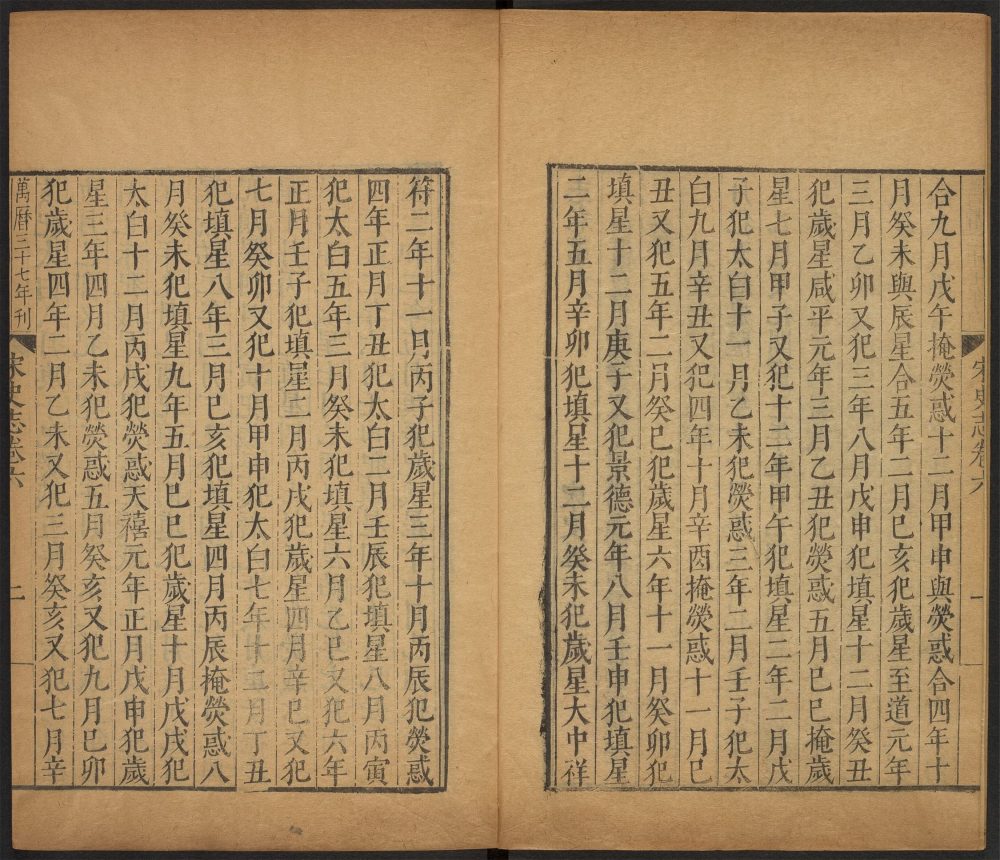 合九月戊午掩熒惑十二月甲申與熒惑合四年十
月癸未與辰星合五年二月巳亥犯歲星至道元年
三月乙卯又犯三年八月戊申犯填星十二月癸丑
犯歲星咸平元年三月乙丑犯熒惑五月巳巳掩歲
星七月甲子又犯十二年甲午犯填星二年二月戊
子犯太白十一月乙未犯熒惑三年二月壬子犯太
白九月辛丑又犯四年十月辛酉掩熒惑十一月巳
丑又犯五年二月癸巳犯歲星六年十一月癸卯犯
填星十二月庚子又犯景德元年八月壬申犯填星
二年五月辛卯犯填星十二月癸未犯歲星大中祥
宋史志卷六
一
符二年十一月丙子犯歲星三年十月丙辰犯熒惑
四年正月丁丑犯太白二月壬辰犯填星八月丙寅
犯太白五年三月癸未犯填星六月乙巳又犯六年
正月壬子犯填星二月丙戌犯歲星四月辛巳又犯
七月癸卯又犯十月甲申犯太白七年十二月丁丑
犯填星八年三月巳亥犯填星四月丙辰掩熒惑八
月癸未犯填星九年五月巳巳犯歲星十月戊戌犯
太白十二月丙戌犯熒惑天禧元年正月戊申犯歲
星三年四月乙未犯熒惑五月癸亥又犯九月巳卯
犯歲星四年二月乙未又犯三月癸亥又犯七月辛
萬曆三十七年刊
宋史志卷六
二